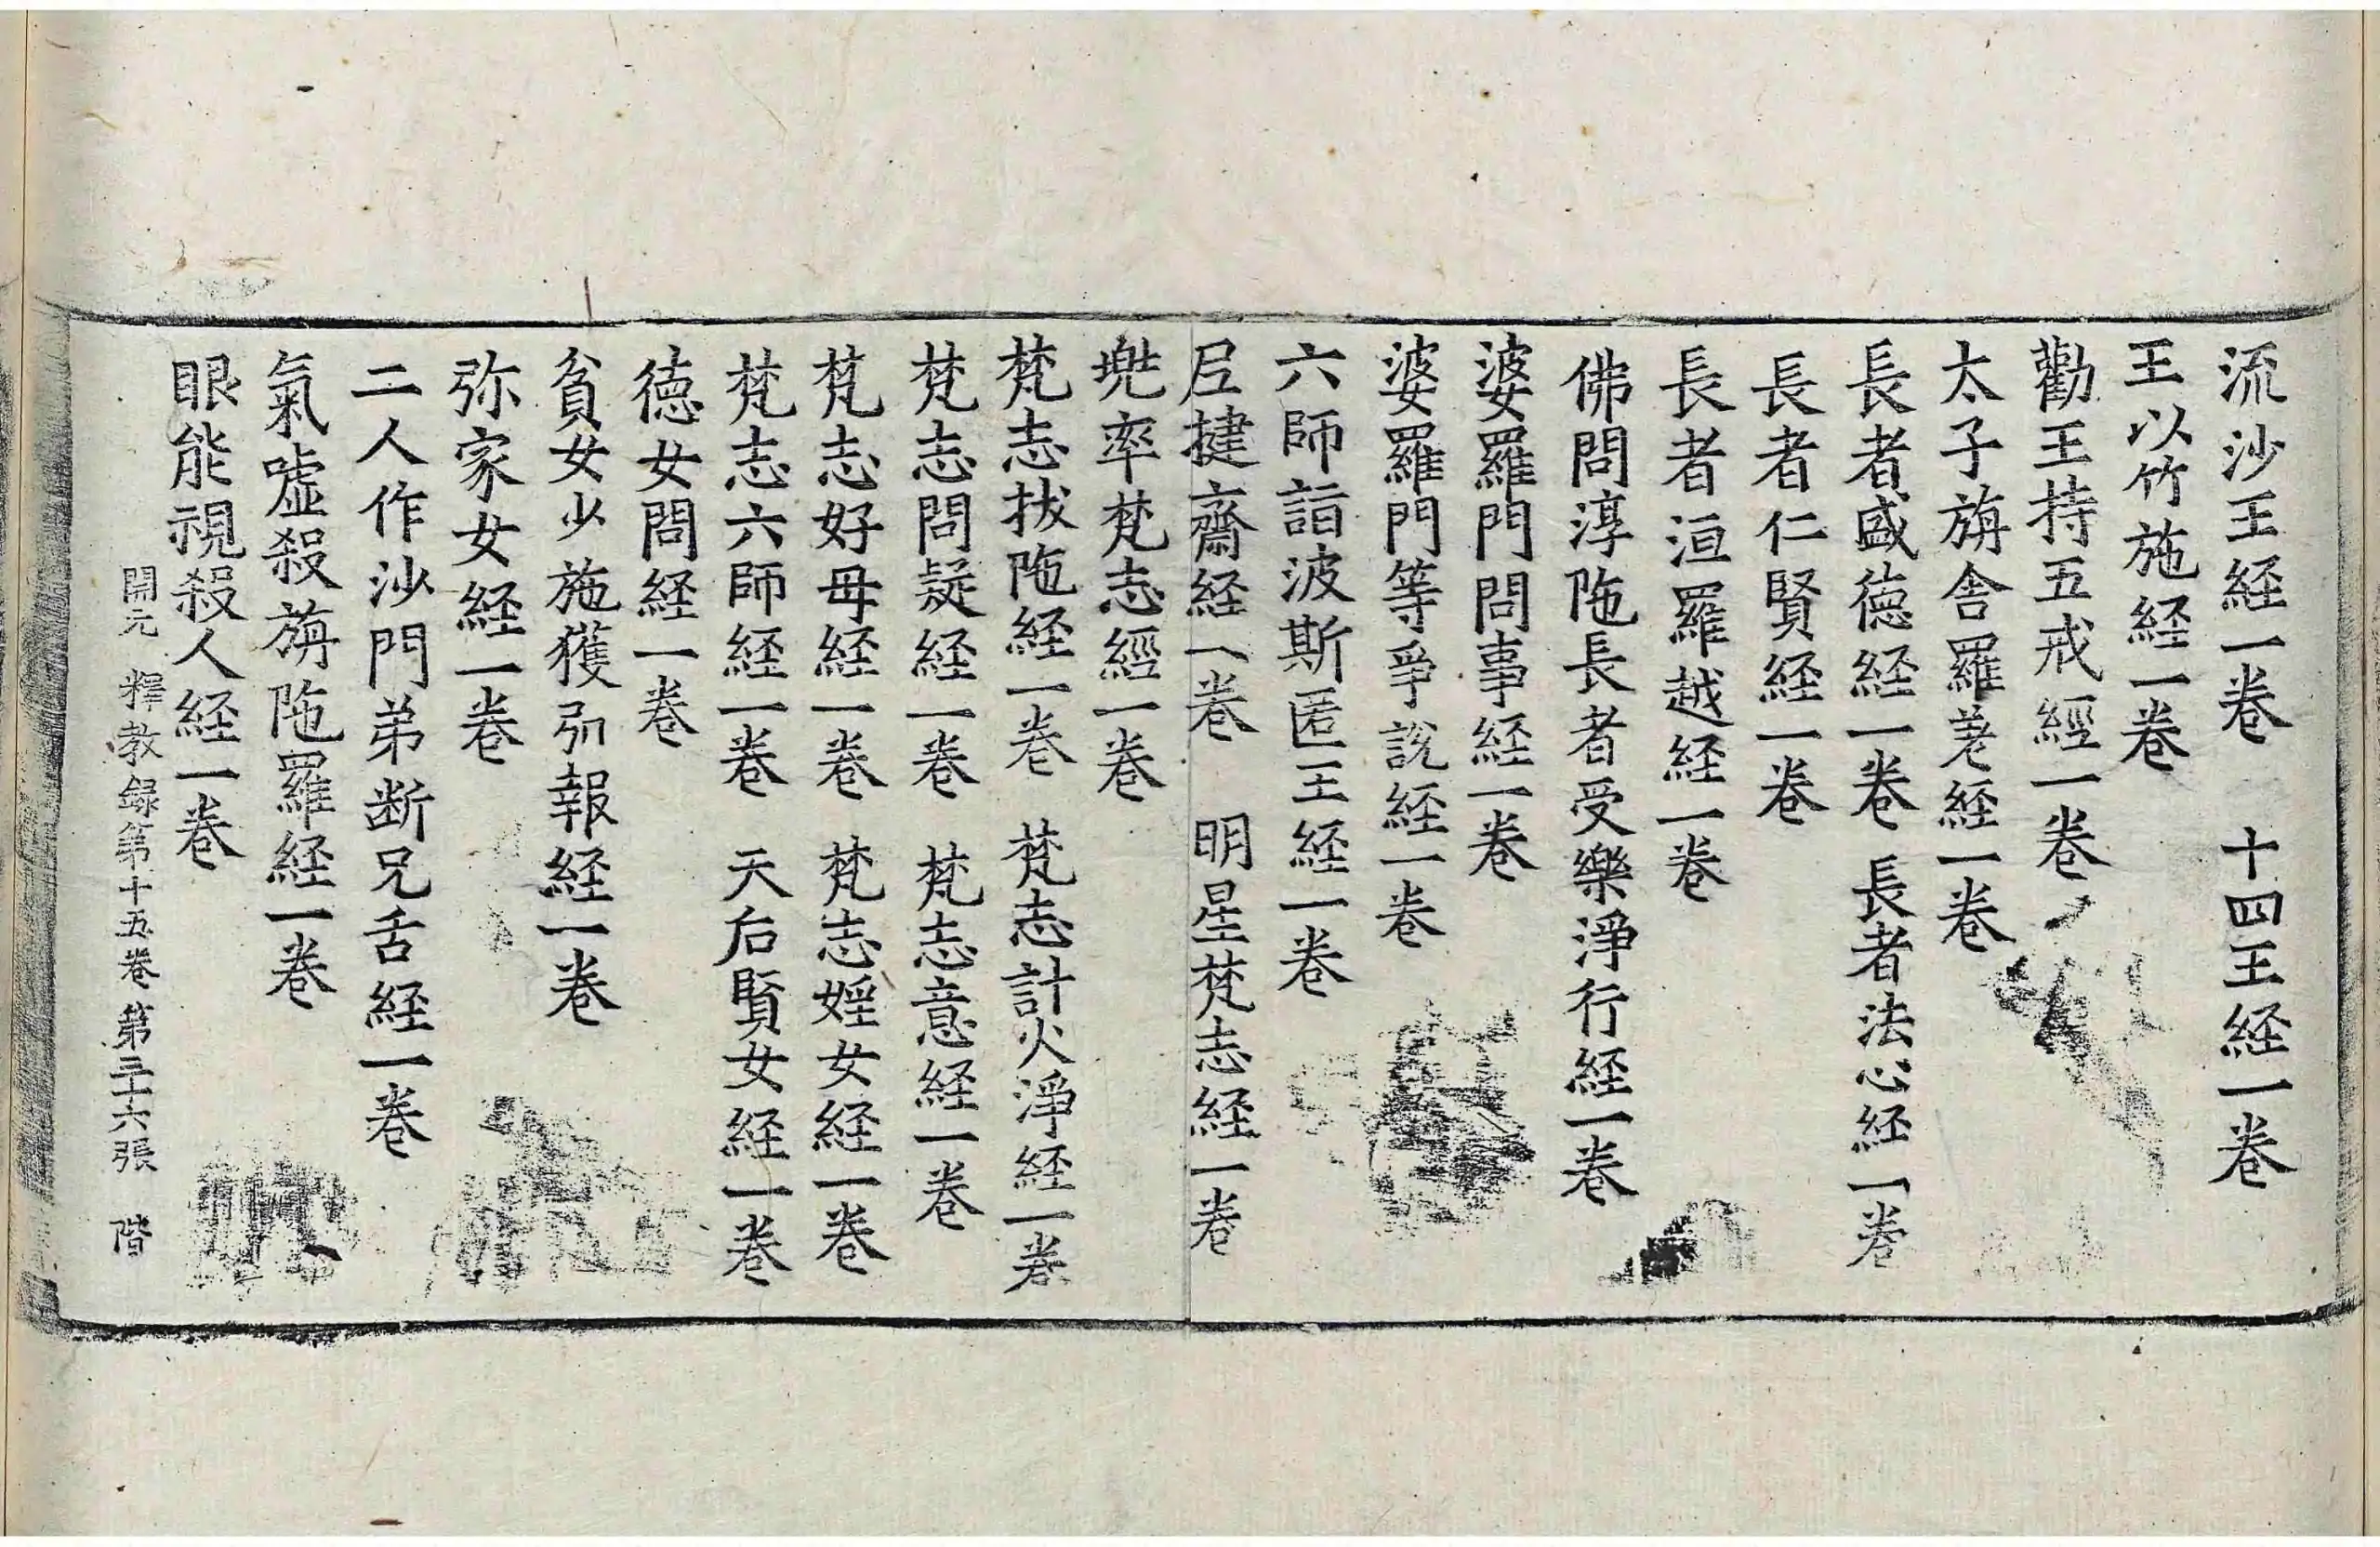 流沙王経一卷　十四王経一卷
王以竹施経一卷
勸王持五戒經一卷
太子旃舍羅㝹経一卷
長者盛徳経一卷　長者法心経一卷
長者仁賢経一卷
長者洹羅越経一卷
佛問淳陁長者受樂淨行経一卷
婆羅門問事経一卷
婆羅門等爭說経一卷
六師詣波斯匿王経一卷
尼揵齋経一卷　明星梵志経一卷
兠率梵志經一卷
梵志拔陁経一卷　梵志計火淨経一卷
梵志問疑経一卷　梵志意経一卷
梵志好母経一卷　梵志婬女経一卷
梵志六師経一卷　天后賢女経一卷
徳女問経一卷
貧女少施獲弘報経一卷
弥家女経一卷
二人作沙門弟断兄舌経一卷
氣噓殺旃陁羅経一卷
眼能視殺人経一卷
開元釋教録第十五卷　第三十六張　階